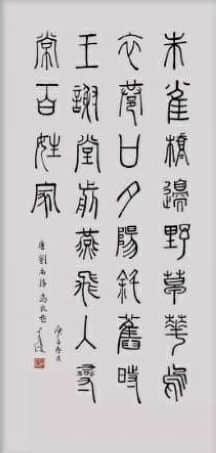 朱雀橋邊野草華烏
衣巷口夕陽斜舊時
王謝堂前燕飛入尋
常百姓家
唐劉禹錫烏衣巷